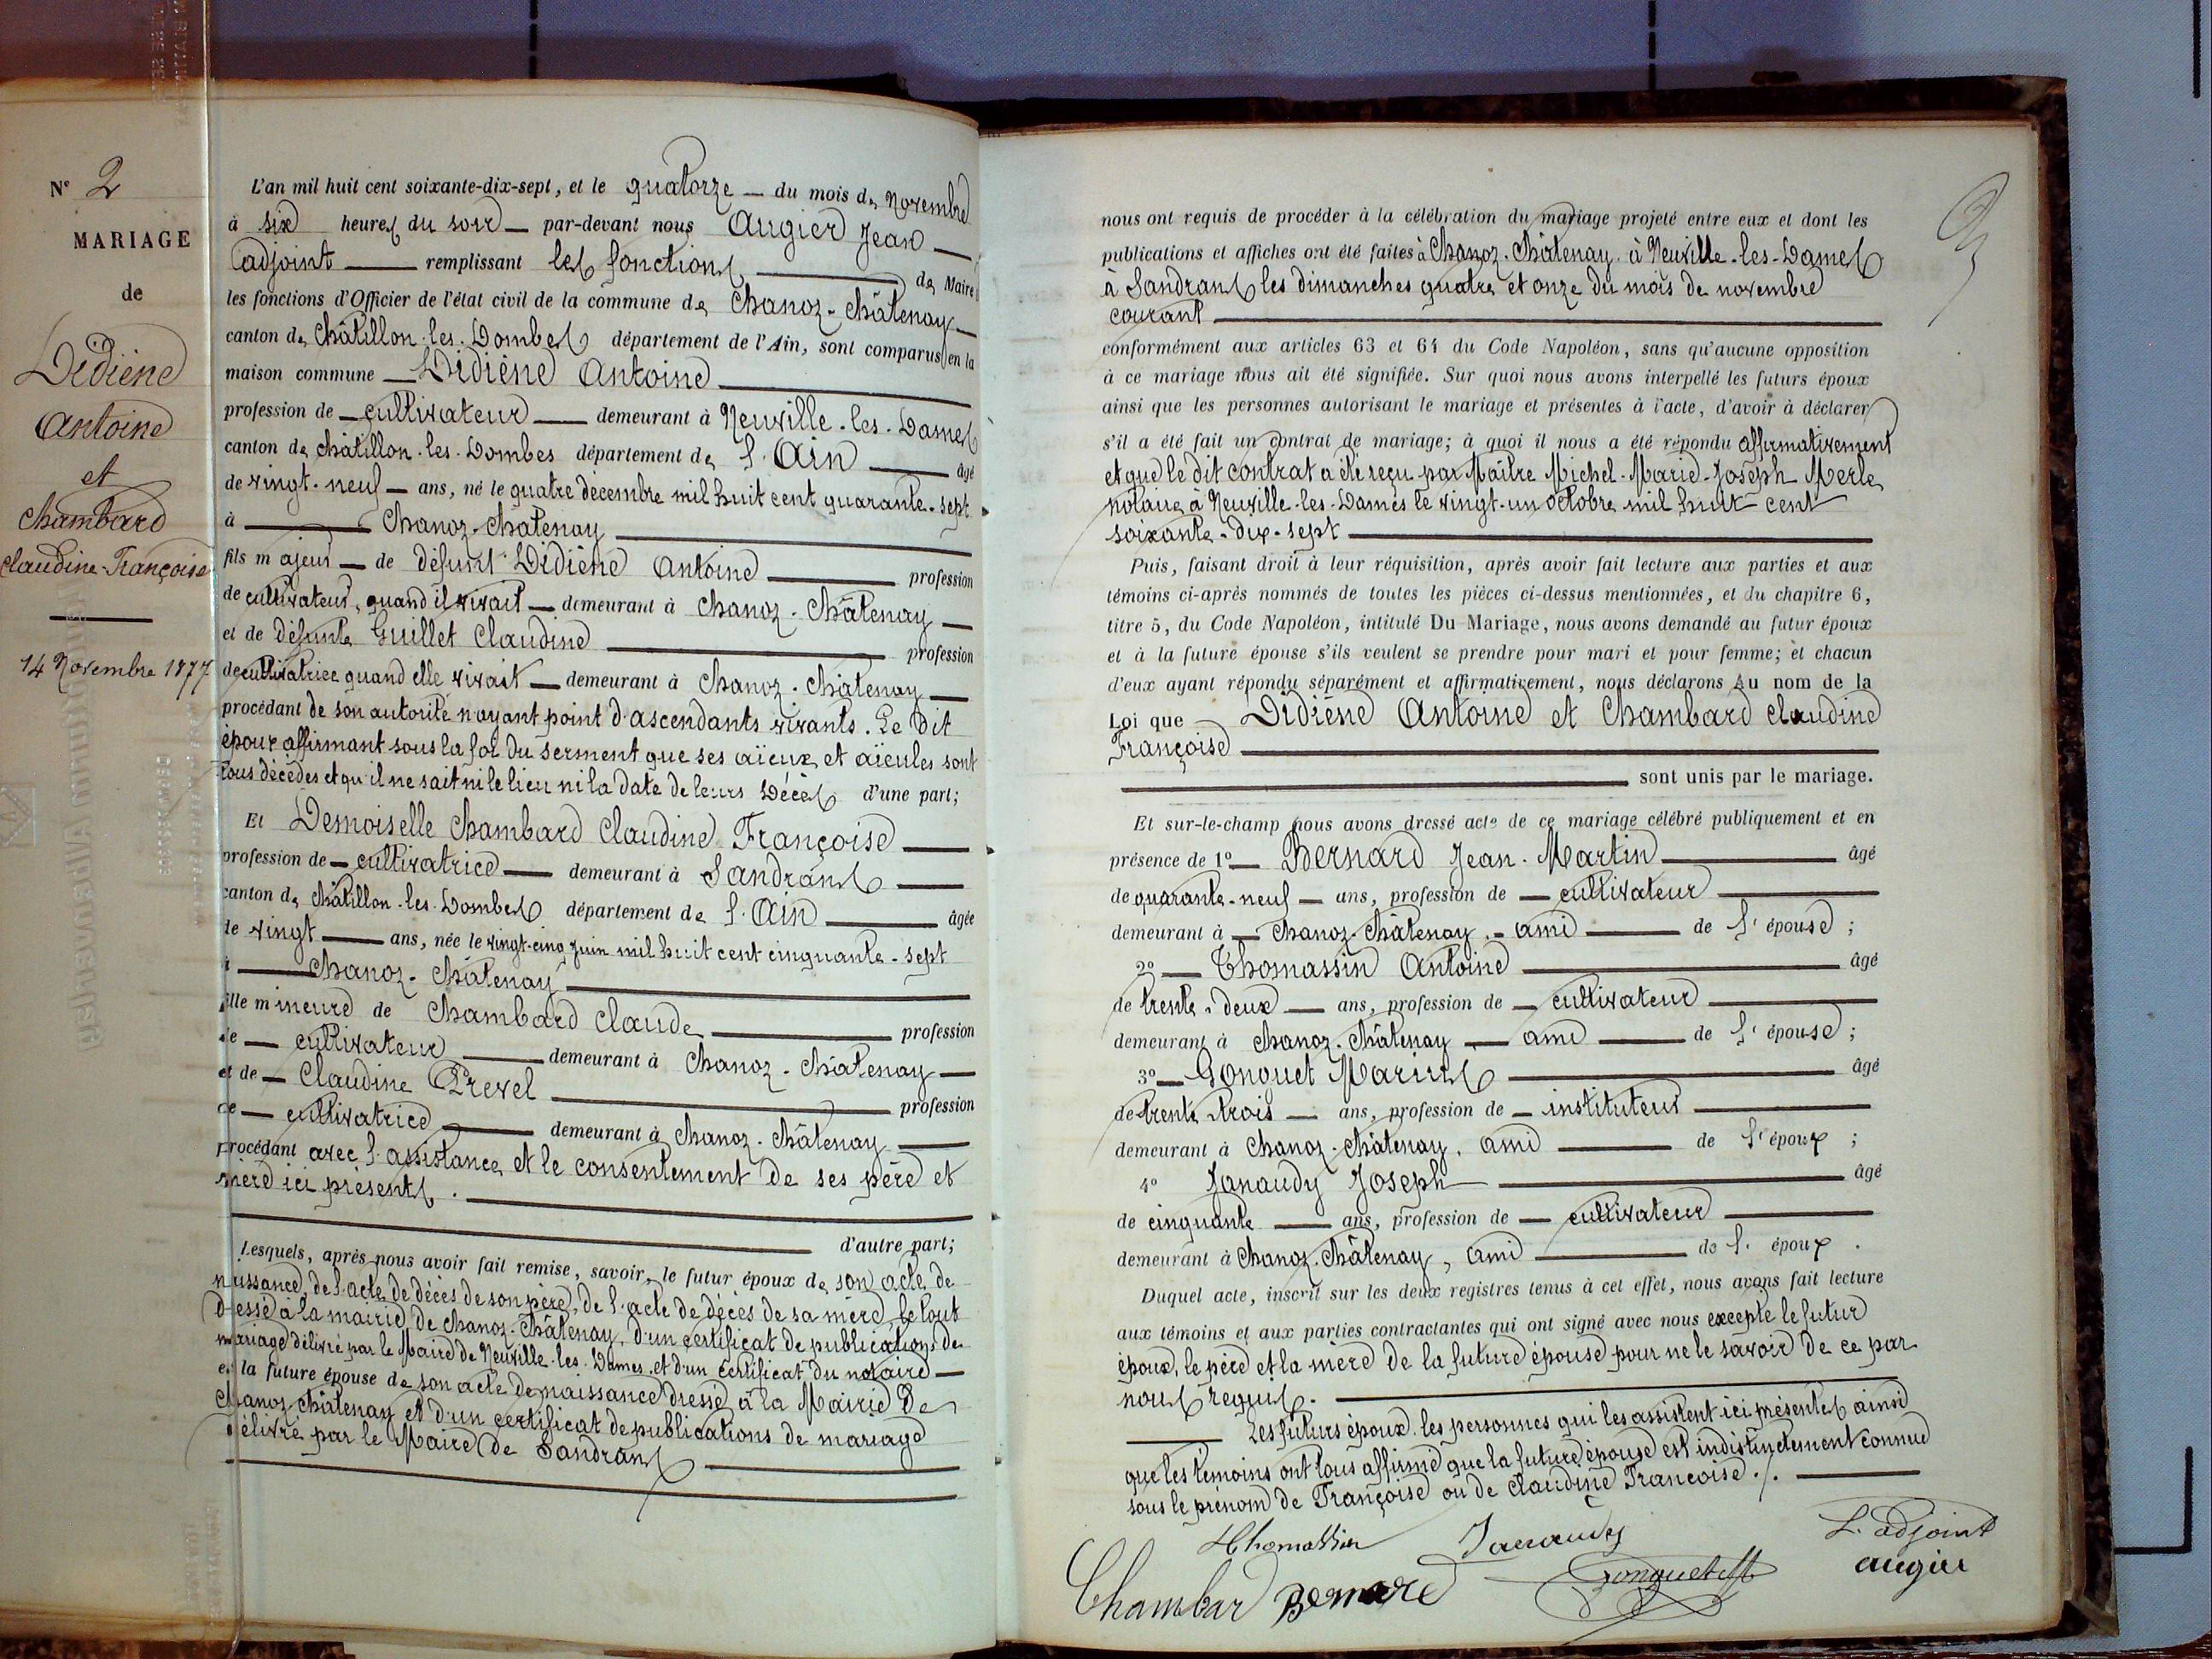 N° 2
MARIAGE
de
Didiène
Antoine
et
Chambard
Claudine-Françoise
14 Novembre 1877
L'an mil huit cent soixante-dix-sept, et le quatorze — du mois de Novembre
à six heures du soir — par-devant nous Augier Jean —
adjoint — remplissant les fonctions — de Maire
les fonctions d'Officier de l'état civil de la commune de Chanoz-Châtenay —
canton de Châtillon-les-Dombes département de l'Ain, sont comparus en la
maison commune — Didiène Antoine —
profession de — cultivateur — demeurant à Neuville-les-Dames
canton de Châtillon-les-Dombes département de l'Ain — âgé
de vingt-neuf — ans, né le quatre decembre mil huit cent quarante-sept
à — Chanoz-Chatenay —
fils majeur — de défunt Didiène Antoine — profession
de cultivateur, quand il vivait — demeurant à Chanoz-Châtenay —
et de défunte Guillet Claudine — profession
de cultivatrice quand elle vivait — demeurant à Chanoz-Châtenay —
procédant de son autorité n'ayant point d'ascendants vivants. Le dit
époux affirmant sous la foi du serment que ses aïeux et aïeules sont
tous décédés et qu'il ne sait ni le lieu ni la date de leurs Décès d'une part;
Et Demoiselle Chambard Claudine Françoise —
profession de — cultivatrice — demeurant à Sandrans —
canton de Châtillon-les-Dombes département de l'Ain — âgée
de vingt — ans, née le vingt-cinq juin mil huit cent cinquante-sept
à — Chanoz-Châtenay —
fille mineure de Chambard Claude — profession
de — cultivateur — demeurant à Chanoz-Châtenay —
et de — Claudine Prevel — profession
de — cultivatrice — demeurant à Chanoz-Châtenay —
procédant avec l'assistance et le consentement de ses père et
mère ici présents. —
d'autre part;
Lesquels, après nous avoir fait remise, savoir, le futur époux de son acte de
naissance, de l'acte de décès de son père, de l'acte de décès de sa mère, le tout
dressé à la mairie de Chanoz-Châtenay, d'un certificat de publications de
mariage délivré par le Maire de Neuville-les-Dames et d'un certificat du notaire —
et la future épouse de son acte de naissance dressé à la Mairie de
Chanoz-Châtenay et d'un certificat de publications de mariage
délivré par le Maire de Sandrans —
nous ont requis de procéder à la célébration du mariage projeté entre eux et dont les
publications et affiches ont été faites à Chanoz-Châtenay, à Neuville-les-Dames
à Sandrans les dimanches quatre et onze du mois de novembre
courant —
conformément aux articles 63 et 64 du Code Napoléon, sans qu'aucune opposition
à ce mariage nous ait été signifiée. Sur quoi nous avons interpellé les futurs époux
ainsi que les personnes autorisant le mariage et présentes à l'acte, d'avoir à déclarer
s'il a été fait un contrat de mariage; à quoi il nous a été répondu affirmativement
et que le dit contrat a été reçu par Maître Michel-Marie-Joseph Merle
notaire à Neuville-les-Dames le vingt-un octobre mil huit cent
soixante-dix-sept —
Puis, faisant droit à leur réquisition, après avoir fait lecture aux parties et aux
témoins ci-après nommés de toutes les pièces ci-dessus mentionnées, et du chapitre 6,
titre 5, du Code Napoléon, intitulé Du Mariage, nous avons demandé au futur époux
et à la future épouse s'ils veulent se prendre pour mari et pour femme; et chacun
d'eux ayant répondu séparément et affirmativement, nous déclarons Au nom de la
Loi que — Didiène Antoine et Chambard Claudine
Françoise —
— sont unis par le mariage.
Et sur-le-champ nous avons dressé acte de ce mariage célébré publiquement et en
présence de 1° — Bernard Jean-Martin — âgé
de quarante-neuf — ans, profession de — cultivateur —
demeurant à — Chanoz-Châtenay, — ami — de l'épouse;
2° — Thomassin Antoine — âgé
de trente-deux — ans, profession de — cultivateur —
demeurant à Chanoz-Châtenay — ami — de l'épouse;
3° — Gonguet Marius — âgé
de trente trois — ans, profession de — instituteur —
demeurant à Chanoz-Châtenay, ami — de l'époux;
4° Janaudy Joseph — âgé
de cinquante — ans, profession de — cultivateur —
demeurant à Chanoz-Châtenay, ami — de l'époux.
Duquel acte, inscrit sur les deux registres tenus à cet effet, nous avons fait lecture
aux témoins et aux parties contractantes qui ont signé avec nous excepté le futur
époux, le père et la mère de la future épouse pour ne le savoir de ce par
nous requis. —
— Les futurs époux, les personnes qui les assistent ici présentes ainsi
que les témoins ont tous affirmé que la future épouse est indistinctement connue
sous le prénom de Françoise ou de Claudine Françoise ./. —
Thomassin Janaudy L'adjoint
Chambar Bernard Gonguet augier